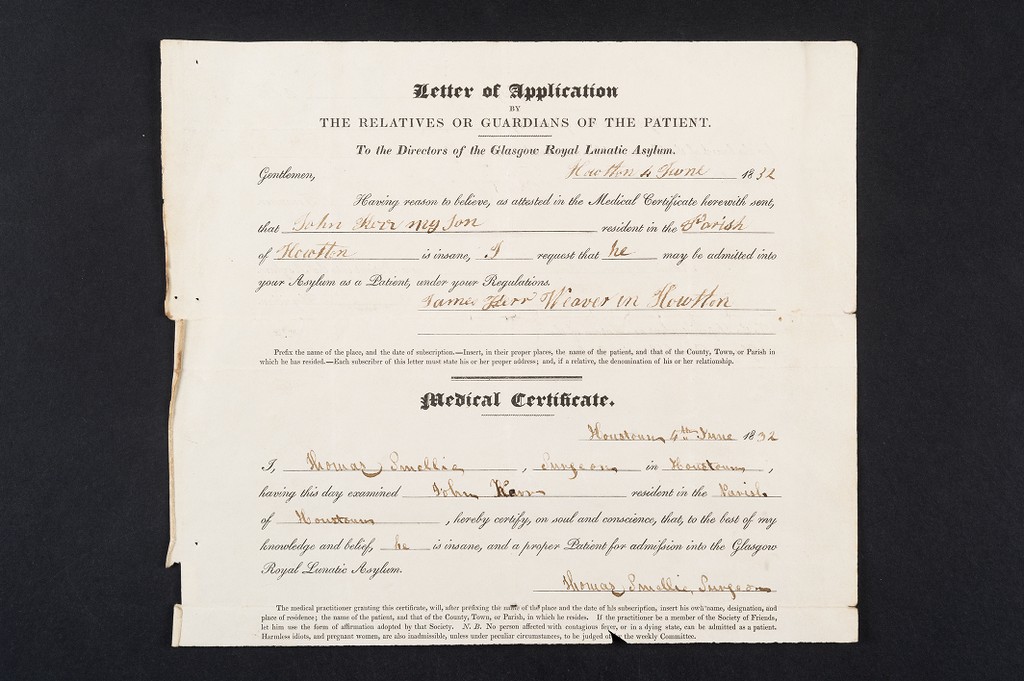 Letter of Application
BY
THE RELATIVES OR GUARDIANS OF THE PATIENT.
To the Directors of the Glasgow Royal Lunatic Asylum.
Howtton 4 June 1832
Gentlemen,
Having reason to believe, as attested in the Medical Certificate herewith sent,
that John Kerr my son resident in the Parish
of Howtton is insane, I request that he may be admitted into
your Asylum as a Patient, under your Regulations.
James Kerr Weaver in Howtton
Prefix the name of the place, and the date of subscription.—Insert, in their proper places, the name of the patient, and that of the County, Town, or Parish in
which he has resided.—Each subscriber of this letter must state his or her proper address; and, if a relative, the denomination of his or her relationship.
Medical Certificate.
Houstoun 4th June 1832
I, Thomas Smellie, Surgeon in Houstoun,
having this day examined John Kerr resident in the Parish
of Houstoun, hereby certify, on soul and conscience, that, to the best of my
knowledge and belief, he is insane, and a proper Patient for admission into the Glasgow
Royal Lunatic Asylum.
Thomas Smellie, Surgeon
The medical practitioner granting this certificate, will, after prefixing the name of the place and the date of his subscription, insert his own name, designation, and
place of residence; the name of the patient, and that of the County, Town, or Parish, in which he resides. If the practitioner be a member of the Society of Friends,
let him use the form of affirmation adopted by that Society. N. B. No person affected with contagious fever, or in a dying state, can be admitted as a patient.
Harmless idiots, and pregnant women, are also inadmissible, unless under peculiar circumstances, to be judged of by the weekly Committee.